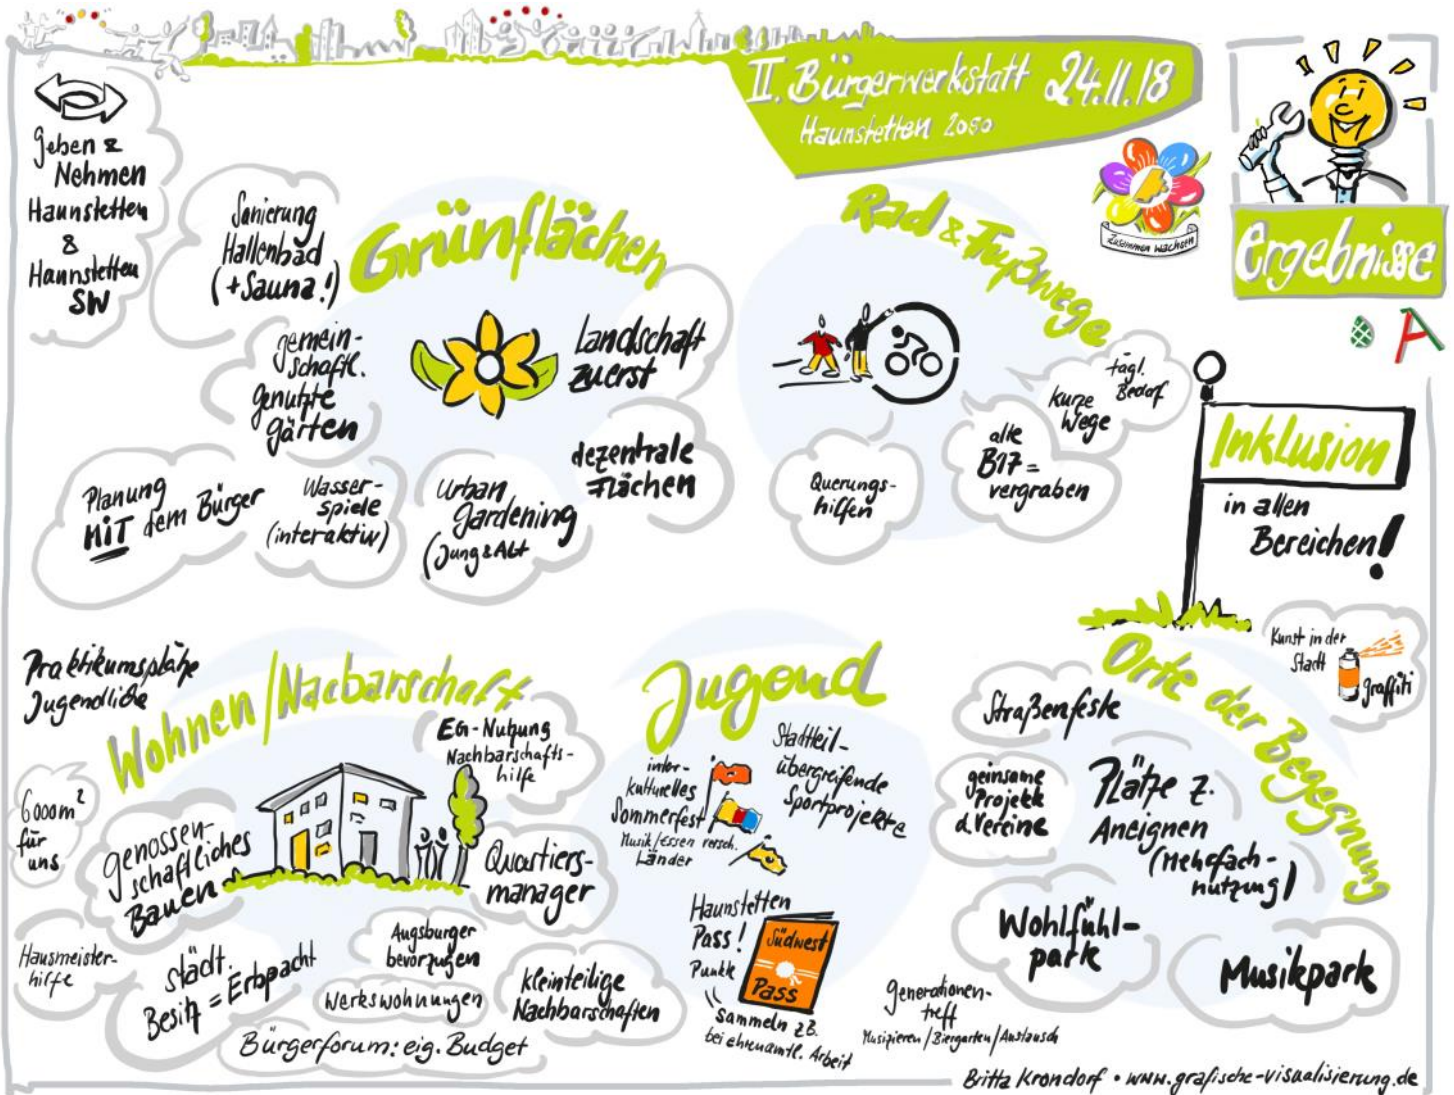 II. Bürgerwerkstatt 24.11.18
Haunstetten 2030
Zusammen wachsen
Ergebnisse
A
Geben &
Nehmen
Haunstetten
&
Haunstetten
SW
Sanierung
Hallenbad
(+Sauna!)
Grünflächen
gemein-
schaftl.
genutzte
gärten
Landschaft
zuerst
dezentrale
Flächen
Planung
MIT dem Bürger
Wasser-
spiele
(interaktiv)
Urban
Gardening
(Jung & Alt
Rad & Fußwege
tägl.
Bedarf
kurze
Wege
alte
B17 =
vergraben
Querungs-
hilfen
Inklusion
in allen
Bereichen!
Praktikumsplätze
Jugendliche
Wohnen/Nacbarschaft
EG-Nutzung
Nachbarschafts-
hilfe
6000m²
für
uns
genossen-
schaftliches
Bauen
Quartiers-
manager
Hausmeister-
hilfe
städt.
Besitz = Erbpacht
Augsburger
bevorzugen
Werkswohnungen
kleinteilige
Nachbarschaften
Bürgerforum: eig. Budget
Jugend
inter-
kulturelles
Sommerfest
Musik/Essen versch.
Länder
Stadtteil-
übergreifende
Sportprojekte
Haunstetten
Pass!
Punkte
sammeln z.B.
bei ehrenamtl. Arbeit
Südwest
Pass
Generationen-
treff
Musizieren/Biergarten/Austausch
Orte der Begegnung
Kunst in der
Stadt
Graffiti
Straßenfeste
geinsame
Projekte
d. Vereine
Plätze z.
Aneignen
(Mehrfach-
nutzung)
Wohlfühl-
park
Musikpark
Britta Krondorf • www.grafische-visualisierung.de